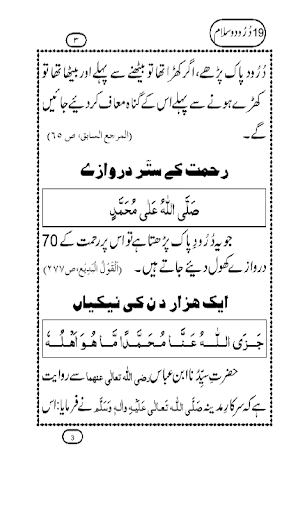 19 دُرُود و سلام
۳
دُرُودِ پاک پڑھے، اگر کھڑا تھا تو بیٹھنے سے پہلے اور بیٹھا تھا تو
کھڑے ہونے سے پہلے اس کے گناہ معاف کر دیئے جائیں
گے۔ (المرجع السابق، ص ۶۵)
رحمت کے ستّر دروازے
صَلَّی اللّٰہُ عَلٰی مُحَمَّدٍ
جو یہ دُرُودِ پاک پڑھتا ہے تو اس پر رحمت کے 70
دروازے کھول دیئے جاتے ہیں۔ (اَلْقَوْلُ الْبَدِیْع، ص۲۷۷)
ایک ہزار دن کی نیکیاں
جَزَی اللّٰہُ عَنَّا مُحَمَّدًا مَّا ھُوَ اَھْلُہٗ
حضرتِ سیِّدُنا ابنِ عباس رضی اللہ تعالٰی عنھما سے روایت
ہے کہ سرکارِ مدینہ صَلَّی اللّٰہُ تَعَالٰی عَلَیْہِ وَاٰلِہٖ وَسَلَّم نے فرمایا: اس
3